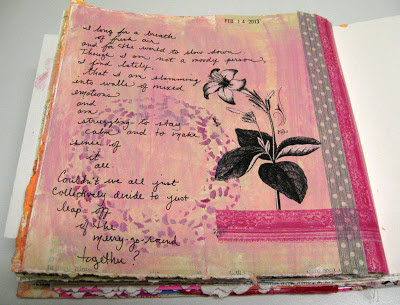 FEB 14 2013
I long for a breath
of fresh air
and for the world to slow down
Though I am not a moody person,
I find lately,
that I am slamming
into walls of mixed
emotions
and
am
struggling to stay
calm and to make
sense of
it
all.
Couldn't we all just
collectively decide to just
leap off
of the
merry-go-round
together?